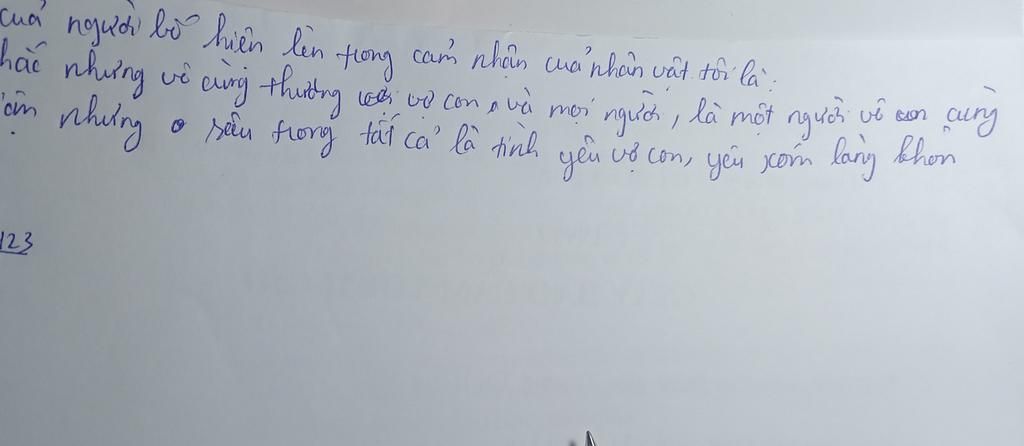 của người bố hiện lên trong cảm nhận của nhân vật tôi là:
hắc nhưng vô cùng thương vợ con, và mọi người, là một người vô cùng
nhưng sâu trong tất cả là tình yêu vợ con, yêu xóm làng khôn
123